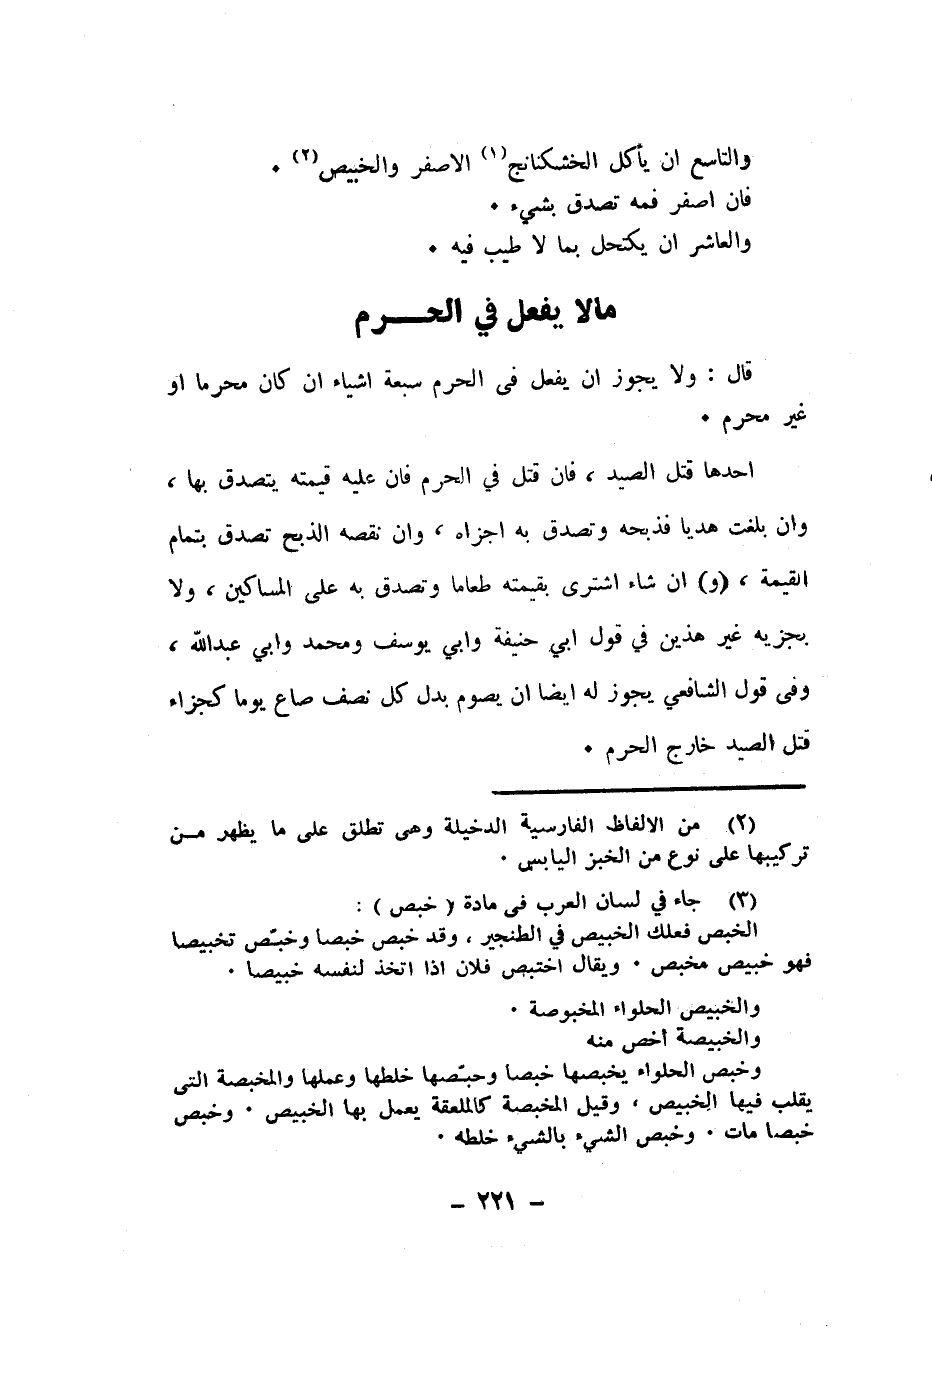 والتاسع ان يأكل الخشكنانج(١) الاصفر والخبيص(٢) ٠
فان اصفر فمه تصدق بشيء ٠
والعاشر ان يكتحل بما لا طيب فيه ٠
مالا يفعل في الحـــرم
قال : ولا يجوز ان يفعل فى الحرم سبعة اشياء ان كان محرما او
غير محرم ٠
احدها قتل الصيد ، فان قتل في الحرم فان عليه قيمته يتصدق بها ،
وان بلغت هديا فذبحه وتصدق به اجزاه ، وان نقصه الذبح تصدق بتمام
القيمة ، (و) ان شاء اشترى بقيمته طعاما وتصدق به على المساكين ، ولا
يجزيه غير هذين في قول ابي حنيفة وابي يوسف ومحمد وابي عبدالله ،
وفى قول الشافعي يجوز له ايضا ان يصوم بدل كل نصف صاع يوما كجزاء
قتل الصيد خارج الحرم ٠
(٢) من الالفاظ الفارسية الدخيلة وهى تطلق على ما يظهر مـن
تركيبها على نوع من الخبز اليابس ٠
(٣) جاء في لسان العرب فى مادة ( خبص ) :
الخبص فعلك الخبيص في الطنجير ، وقد خبص خبصا وخبّص تخبيصا
فهو خبيص مخبص ٠ ويقال اختبص فلان اذا اتخذ لنفسه خبيصا ٠
والخبيص الحلواء المخبوصة ٠
والخبيصة أخص منه
وخبص الحلواء يخبصها خبصا وحبّصها خلطها وعملها والمخبصة التى
يقلب فيها الخبيص ، وقيل المخبصة كالملعقة يعمل بها الخبيص ٠ وخبص
خبصا مات ٠ وخبص الشيء بالشيء خلطه ٠
– ٢٢١ –